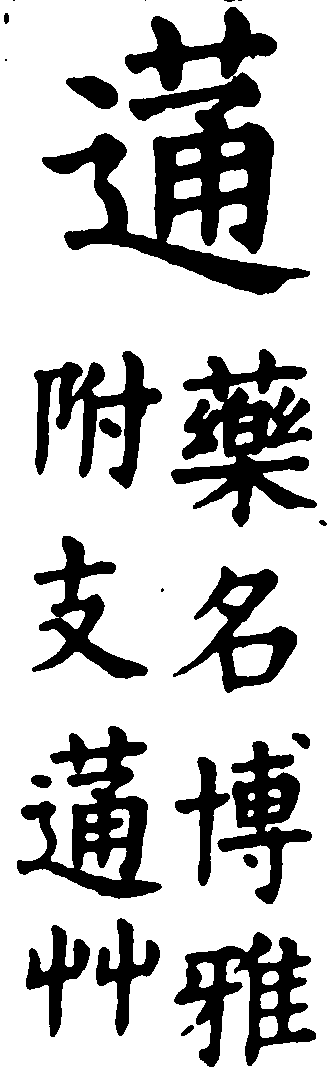 蓪
藥名博雅
附支蓪艸